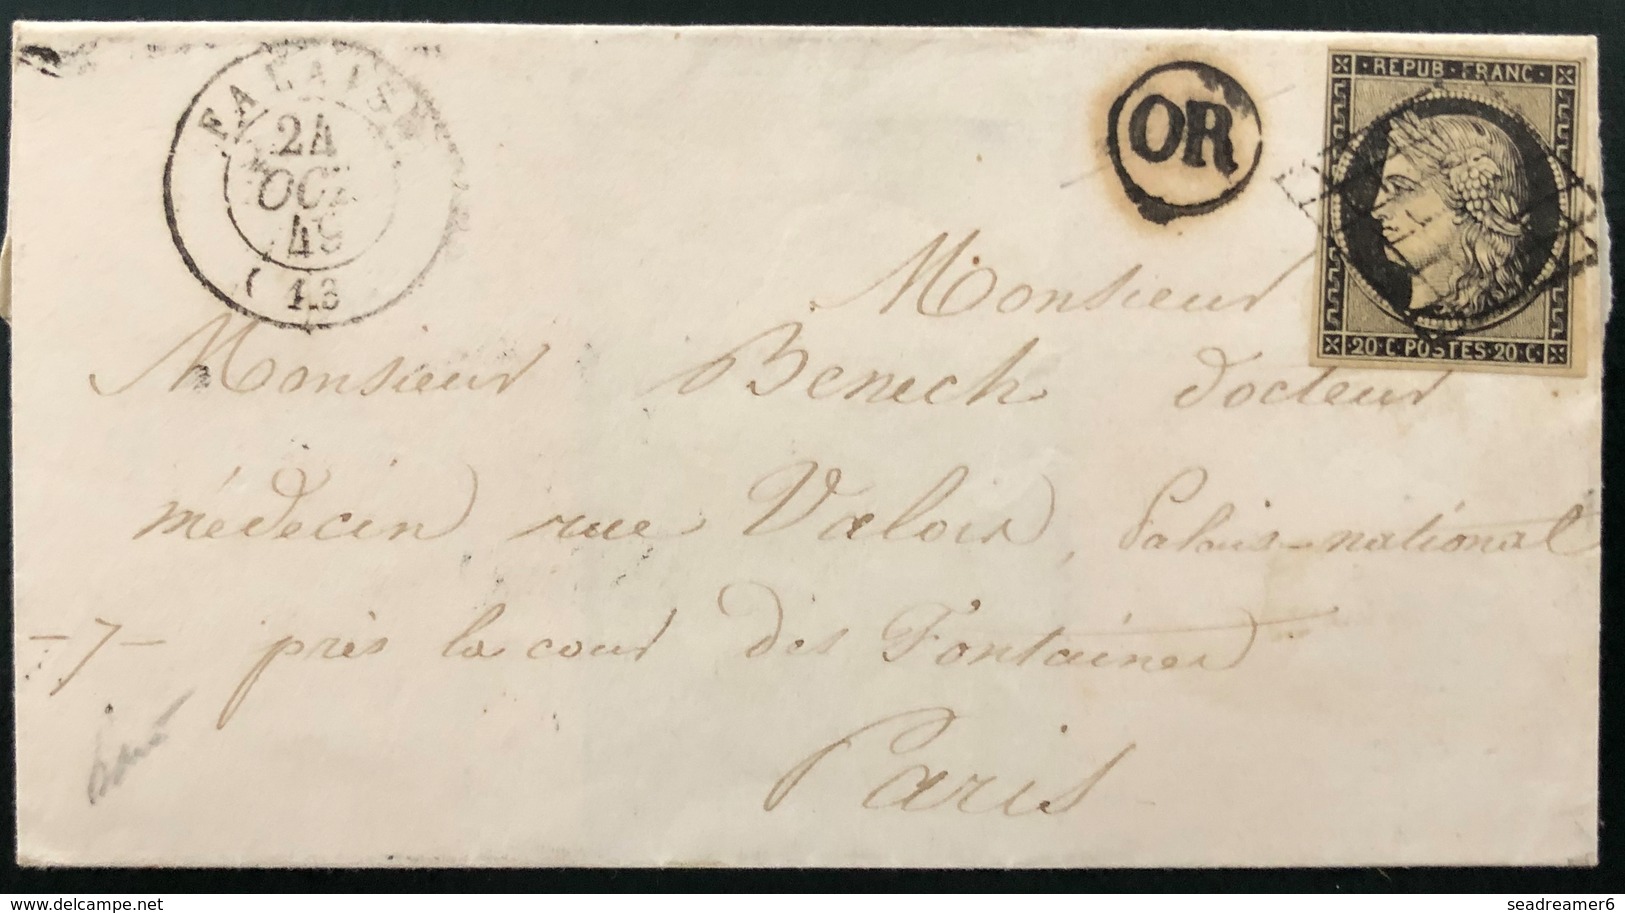 FALAISE
24
OCT
49
(13
OR
REPUB·FRANC·
20·C·POSTES·20·C·
Monsieur
Monsieur Benech docteur
médecin rue Valois, Palais-national
-7- près la cour des Fontaines
Paris
delcampe.net
seadreamer6